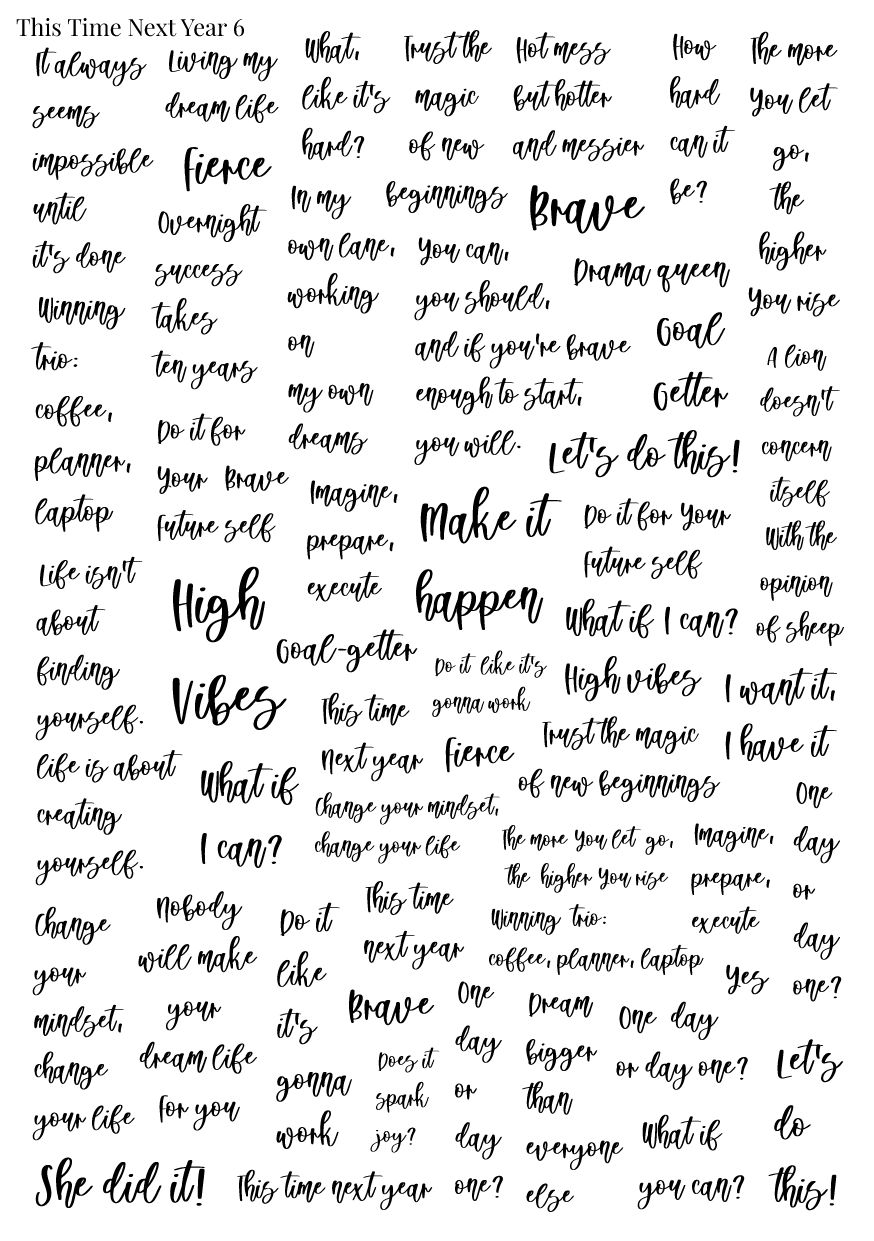 This Time Next Year 6
It always
seems
impossible
until
it's done
Winning
trio:
coffee,
planner,
laptop
Life isn't
about
finding
yourself.
life is about
creating
yourself.
Change
your
mindset,
change
your life
She did it!
Living my
dream life
Fierce
Overnight
success
takes
ten years
Do it for
Your Brave
Future self
High
Vibes
What if
I can?
Nobody
will make
your
dream life
For you
This time next year
What,
like it's
hard?
In my
own lane,
working
on
my own
dreams
Imagine,
prepare,
execute
Goal-getter
This time
Next year
Change your mindset,
change your life
Do it
like
it's
gonna
work
This time
next year
Brave
Does it
spark
joy?
Trust the
magic
of new
beginnings
You can,
you should,
and if you're brave
enough to start,
you will.
Make it
happen
Do it like it's
gonna work
Fierce
Hot mess
but hotter
and messier
Brave
Drama queen
Goal
Getter
Let's do this!
Do it for Your
Future self
What if I can?
High vibes
Trust the magic
of new beginnings
The more You let go,
the higher You rise
Winning trio:
coffee, planner, laptop
One
day
or
day
one?
Dream
bigger
than
everyone
else
How
hard
can it
be?
The more
You let
go,
the
higher
You rise
A lion
doesn't
concern
itself
With the
opinion
of sheep
I want it,
I have it
Imagine,
prepare,
execute
One
day
or
day
one?
Yes
One day
or day one?
What if
you can?
Let's
do
this!